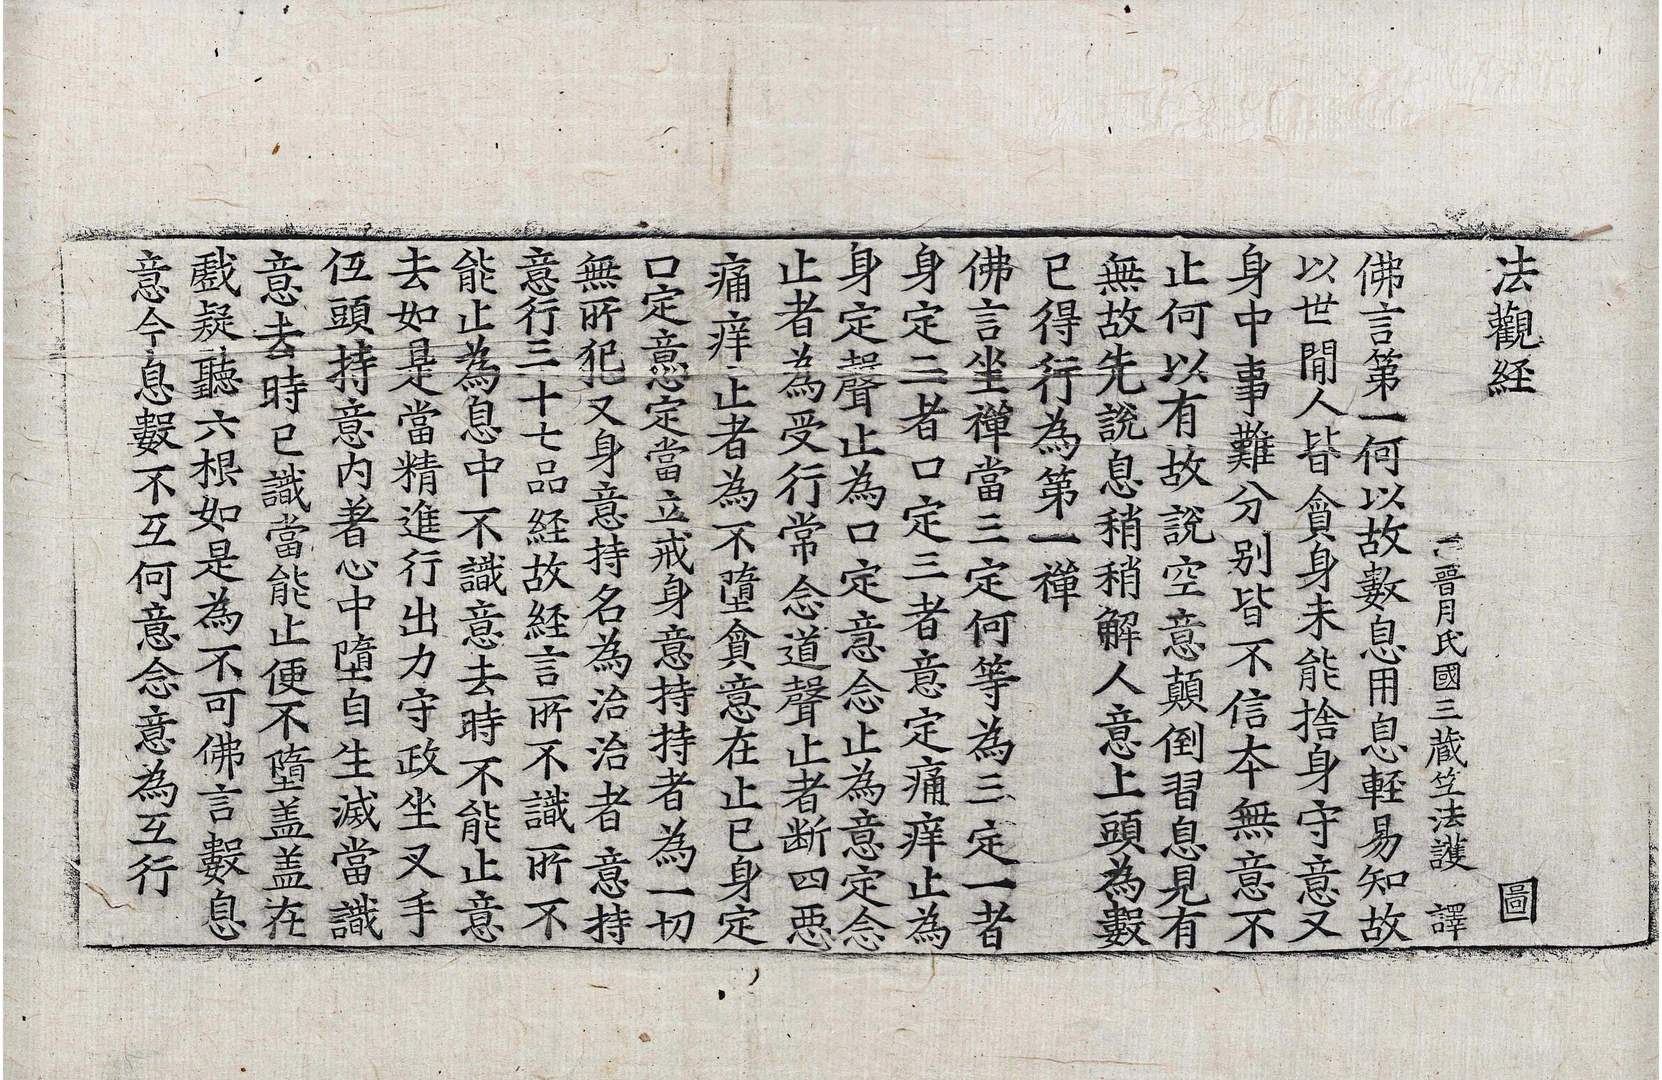 法觀経 圖
晋月氏國三藏竺法護 譯
佛言第一何以故數息用息輕易知故
以世間人皆貪身未能捨身守意又
身中事難分别皆不信本無意不
止何以有故說空意顛倒習息見有
無故先說息稍稍解人意上頭為數
已得行為第一禪
佛言坐禪當三定何等為三定一者
身定二者口定三者意定痛痒止為
身定聲止為口定意念止為意定念
止者為受行常念道聲止者断四惡
痛痒止者為不墮貪意在止已身定
口定意定當立戒身意持持者為一切
無所犯又身意持名為治治者意持
意行三十七品経故経言所不識所不
能止為息中不識意去時不能止意
去如是當精進行出力守政坐叉手
仾頭持意内著心中墮自生滅當識
意去時已識當能止便不墮盖盖在
戲疑聽六根如是為不可佛言數息
意今息數不互何意念意為互行